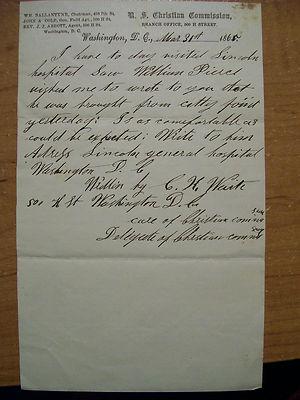 WM. BALLANTYNE, Chairman, 498 7th St.
JOHN A. COLE, Gen. Field Agt., 500 H St.
REV. J. J. ABBOTT, Agent, 500 H St.
Washington, D. C.
U. S. Christian Commission,
BRANCH OFFICE, 500 H STREET.
Washington, D. C., Mar 31st 1865
I have to day visited Lincoln
hospital Saw William Pierce
wished me to wrote to you that
he was brought from citty point
yesterday: Is as comfortable as
could be expected: Wrote to him
Adress Lincoln general hospital
Washington D. C
Written by C. H. Waite
500 H St Washington D. C
care of Christian com
Delegate of Christian com